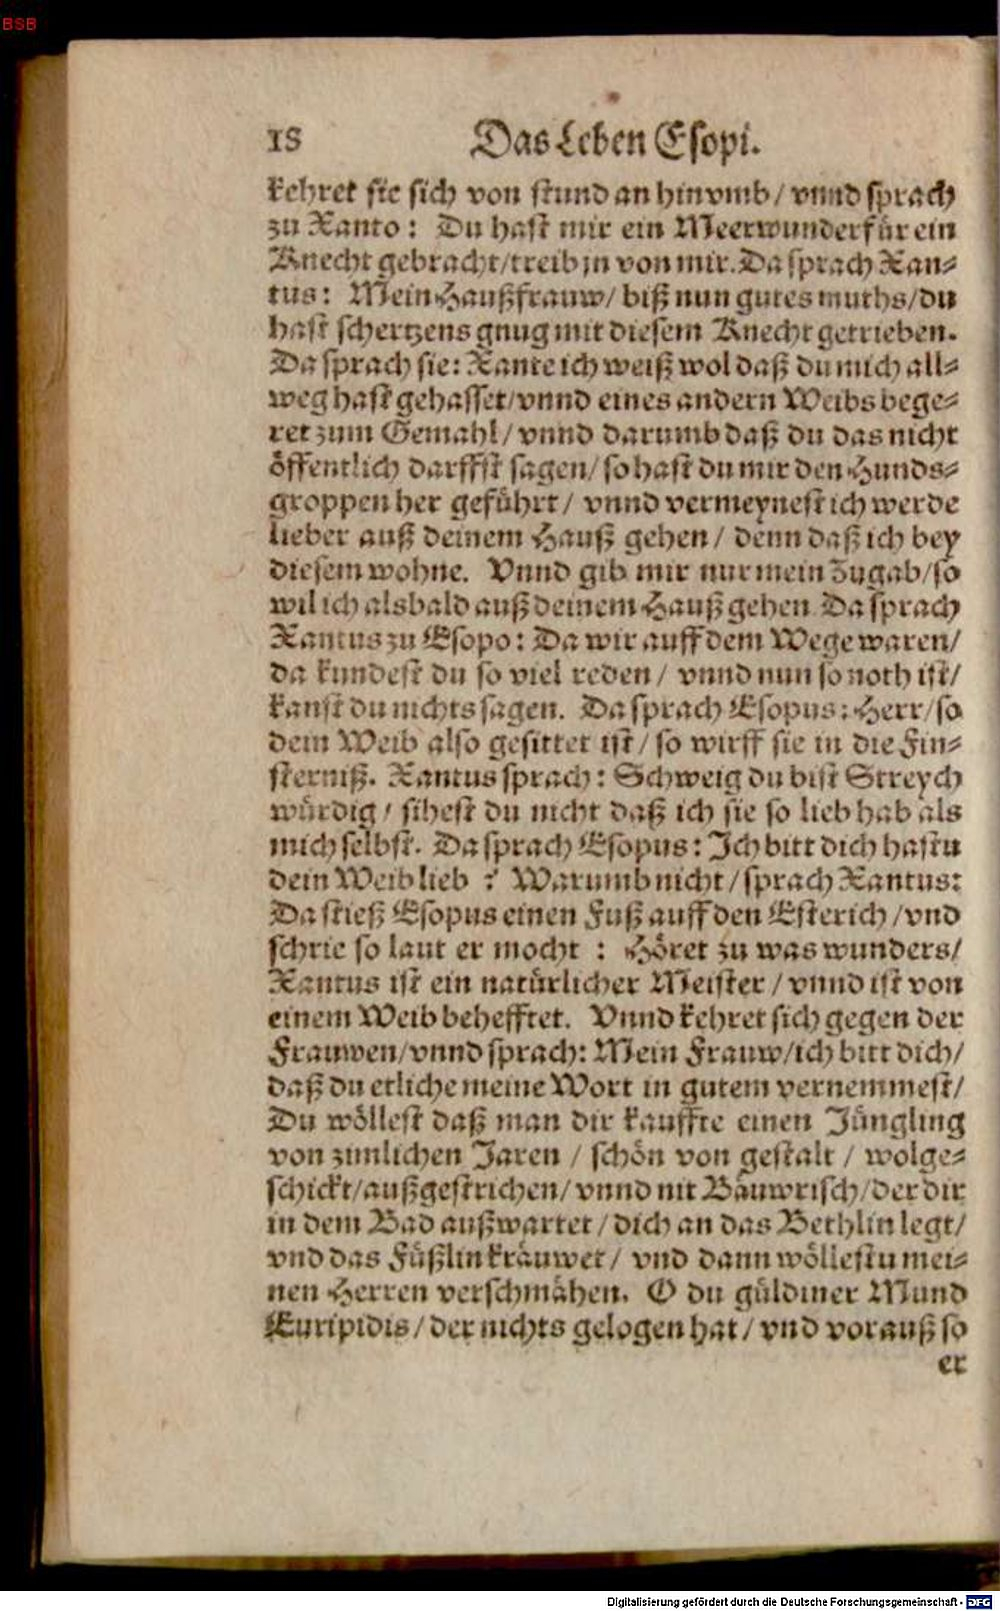 BSB
18 Das Leben Esopi.
kehret sie sich von stund an hinvmb / vnnd sprach
zu Xanto: Du hast mir ein Meerwunder für ein
Knecht gebracht/treib jn von mir. Da sprach Xan⸗
tus: Mein Haußfrauw/ biß nun gutes muths/du
hast schertzens gnug mit diesem Knecht getrieben.
Da sprach sie: Xante ich weiß wol daß du mich all⸗
weg hast gehasset/vnnd eines andern Weibs bege⸗
ret zum Gemahl/ vnnd darumb daß du das nicht
öffentlich darffst sagen/ so hast du mir den Hunds⸗
groppen her geführt/ vnnd vermeynest ich werde
lieber auß deinem Hauß gehen/ denn daß ich bey
diesem wohne. Vnnd gib mir nur mein Zugab/so
wil ich alsbald auß deinem Hauß gehen. Da sprach
Xantus zu Esopo: Da wir auff dem Wege waren/
da kundest du so viel reden/ vnnd nun so noth ist/
kanst du nichts sagen. Da sprach Esopus: Herr/so
dein Weib also gesittet ist/ so wirff sie in die Fin⸗
sterniß. Xantus sprach: Schweig du bist Streych
würdig/ sihest du nicht daß ich sie so lieb hab als
mich selbst. Da sprach Esopus: Ich bitt dich hastu
dein Weib lieb ? Warumb nicht/sprach Xantus:
Da stieß Esopus einen Fuß auff den Esterich/vnd
schrie so laut er mocht : Höret zu was wunders/
Xantus ist ein natürlicher Meister/ vnnd ist von
einem Weib behefftet. Vnnd kehret sich gegen der
Frauwen/vnnd sprach: Mein Frauw/ich bitt dich/
daß du etliche meine Wort in gutem vernemmest/
Du wöllest daß man dir kauffte einen Jüngling
von zimlichen Jaren / schön von gestalt / wolge⸗
schickt/außgestrichen/ vnnd nit Bäuwrisch/der dir
in dem Bad außwartet/dich an das Bethlin legt/
vnd das Füßlin kräuwet/ vnd dann wöllestu mei⸗
nen Herren verschmähen. O du güldiner Mund
Euripidis/der nichts gelogen hat/ vnd vorauß so
er
Digitalisierung gefördert durch die Deutsche Forschungsgemeinschaft - DFG